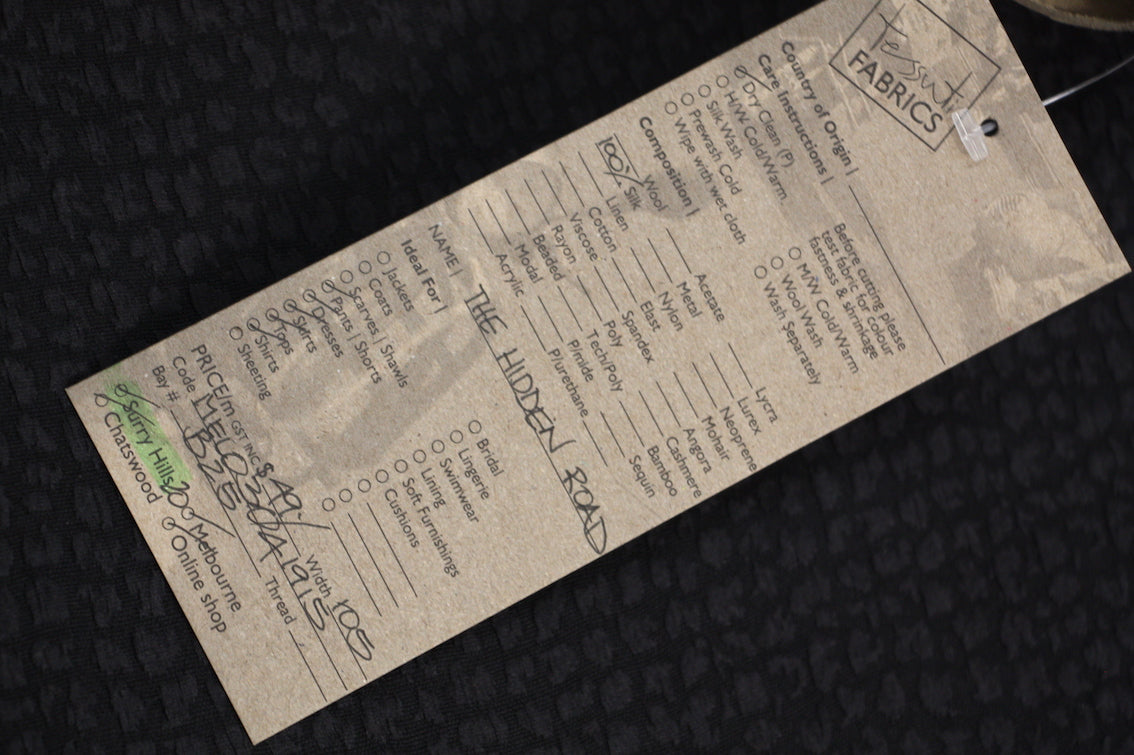 Tessuti
FABRICS
Country of Origin |
Care Instructions |
Dry Clean (P)
H/W Cold/Warm
Silk Wash
Prewash Cold
Wipe with wet cloth
Before cutting please
test fabric for colour
fastness & shrinkage
M/W Cold/Warm
Wool Wash
Wash Separately
Composition |
Wool
100% Silk
Linen
Cotton
Viscose
Rayon
Beaded
Modal
Acrylic
Acetate
Metal
Nylon
Elast
Spandex
Poly
Tech/Poly
P/mide
P/urethane
Lycra
Lurex
Neoprene
Mohair
Angora
Cashmere
Bamboo
Sequin
NAME | THE HIDDEN ROAD
Ideal For |
Jackets
Coats
Scarves | Shawls
Pants | Shorts
Dresses
Skirts
Tops
Shirts
Sheeting
Bridal
Lingerie
Swimwear
Lining
Soft Furnishings
Cushions
PRICE/m GST INC $ 49/ Width 105
Code MEL03041915
Bay # B25 Thread
Surry Hills Melbourne
Chatswood Online shop